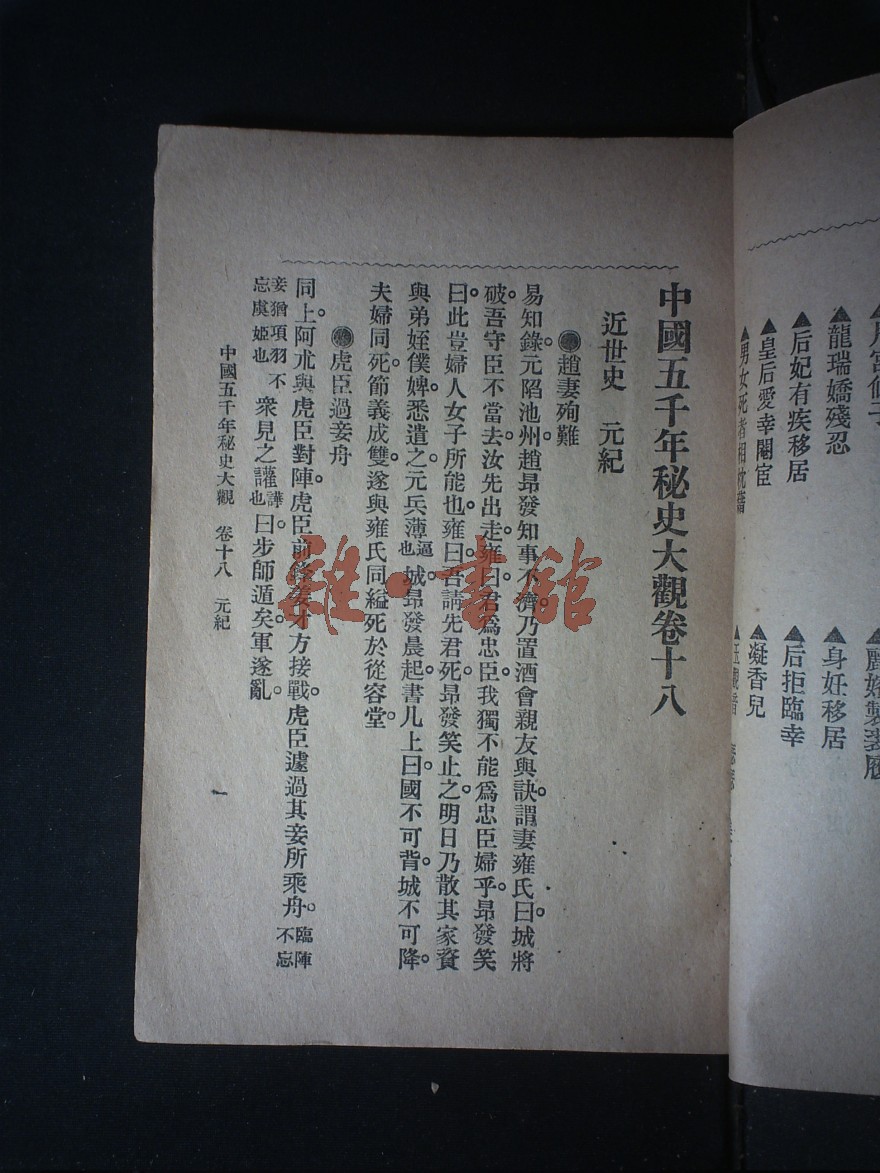 龍瑞嬌殘忍
后妃有疾移居
皇后愛幸閹宦
男女死者相枕藉
身妊移居
后拒臨幸
凝香兒
中國五千年秘史大觀卷十八
近世史 元紀
趙妻殉難
易知錄。元陷池州趙昂發知事不濟。乃置酒會親友與訣。謂妻雍氏曰城將
破。吾守臣不當去。汝先出走。雍曰君爲忠臣我獨不能爲忠臣婦乎。昂發笑
曰。此豈婦人女子所能也。雍曰。吾請先君死。昂發笑止之。明日乃散其家資
與弟姪僕婢悉遣之。元兵薄逼也城。昂發晨起。書几上曰國不可背。城不可降。
夫婦同死。節義成雙。遂與雍氏同縊死於從容堂
虎臣過妾舟
同上。阿朮與虎臣對陣。虎臣前鋒姜才方接戰。虎臣遽過其妾所乘舟。臨陣不忘
妾猶項羽不忘虞姬也衆見之讙譁也。曰步師遁矣。軍遂亂。
中國五千年秘史大觀 卷十八 元紀
一
雜·書館